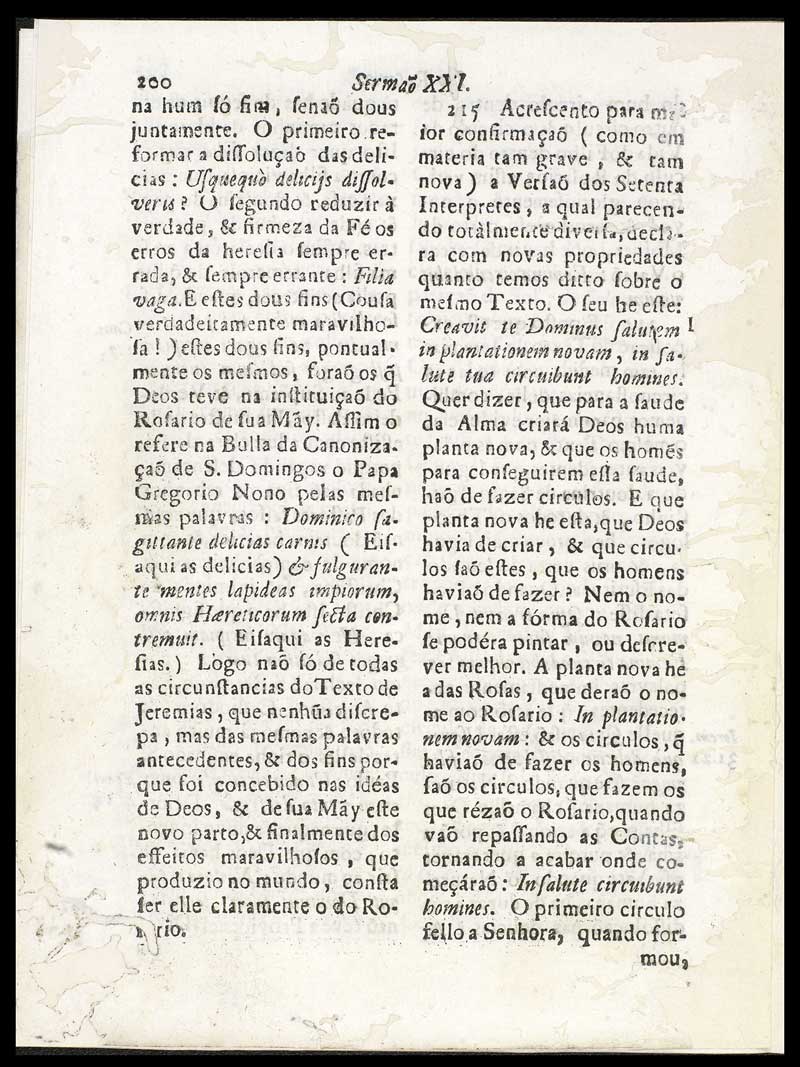 200
Sermaõ XXI.
na hum ſó fim, ſenaõ dous
juntamente. O primeiro re-
formar a diſſoluçaõ das deli-
cias: Uſquequò delicijs diſſol-
veris? O ſegundo reduzir à
verdade, & firmeza da Fé os
erros da hereſia ſempre er-
rada, & ſempre errante: Filia
vaga. E eſtes dous fins (Couſa
verdadeitamente maravilho-
ſa!) eſtes dous fins, pontual-
mente os meſmos, foraõ os q̃
Deos teve na inſtituiçaõ do
Roſario de ſua Mãy. Aſſim o
refere na Bulla da Canoniza-
çaõ de S. Domingos o Papa
Gregorio Nono pelas meſ-
mas palavras: Dominico ſa-
gittante delicias carnis (Eiſ-
aqui as delicias) & fulguran-
te mentes lapideas impiorum,
omnis Hæreticorum ſecta con-
tremuit. (Eiſaqui as Here-
ſias.) Lògo naõ ſó de todas
as circunſtancias do Texto de
Jeremias, que nenhũa diſcre-
pa, mas das meſmas palavras
antecedentes, & dos fins por-
que foi concebido nas idéas
de Deos, & de ſua Mãy eſte
novo parto, & finalmente dos
effeitos maravilhoſos, que
produzio no mundo, conſta
ſer elle claramente o do Ro-
ſario.
215 Acreſcento para ma-
ior confirmaçaõ (como em
materia tam grave, & tam
nova) a Verſaõ dos Setenta
Interpretes, a qual parecen-
do totàlmente diverſa, decla-
ra com novas propriedades
quanto temos ditto ſobre o
meſmo Texto. O ſeu he eſte:
Creavit te Dominus ſalutem
in plantationem novam, in ſa-
lute tua circuibunt homines.
Quer dizer, que para a ſaude
da Alma criará Deos huma
planta nova, & que os homẽs
para conſeguirem eſta ſaude,
haõ de fazer circulos. E que
planta nova he eſta, que Deos
havia de criar, & que circu-
los ſaõ eſtes, que os homens
haviaõ de fazer? Nem o no-
me, nem a fórma do Roſario
ſe podéra pintar, ou deſcre-
ver melhor. A planta nova he
a das Roſas, que deraõ o no-
me ao Roſario: In plantatio-
nem novam: & os circulos, q̃
haviaõ de fazer os homens,
ſaõ os circulos, que fazem os
que rézaõ o Roſario, quando
vaõ repaſſando as Contas,
tornando a acabar onde co-
meçáraõ: In ſalute circuibunt
homines. O primeiro circulo
fello a Senhora, quando for-
mou,